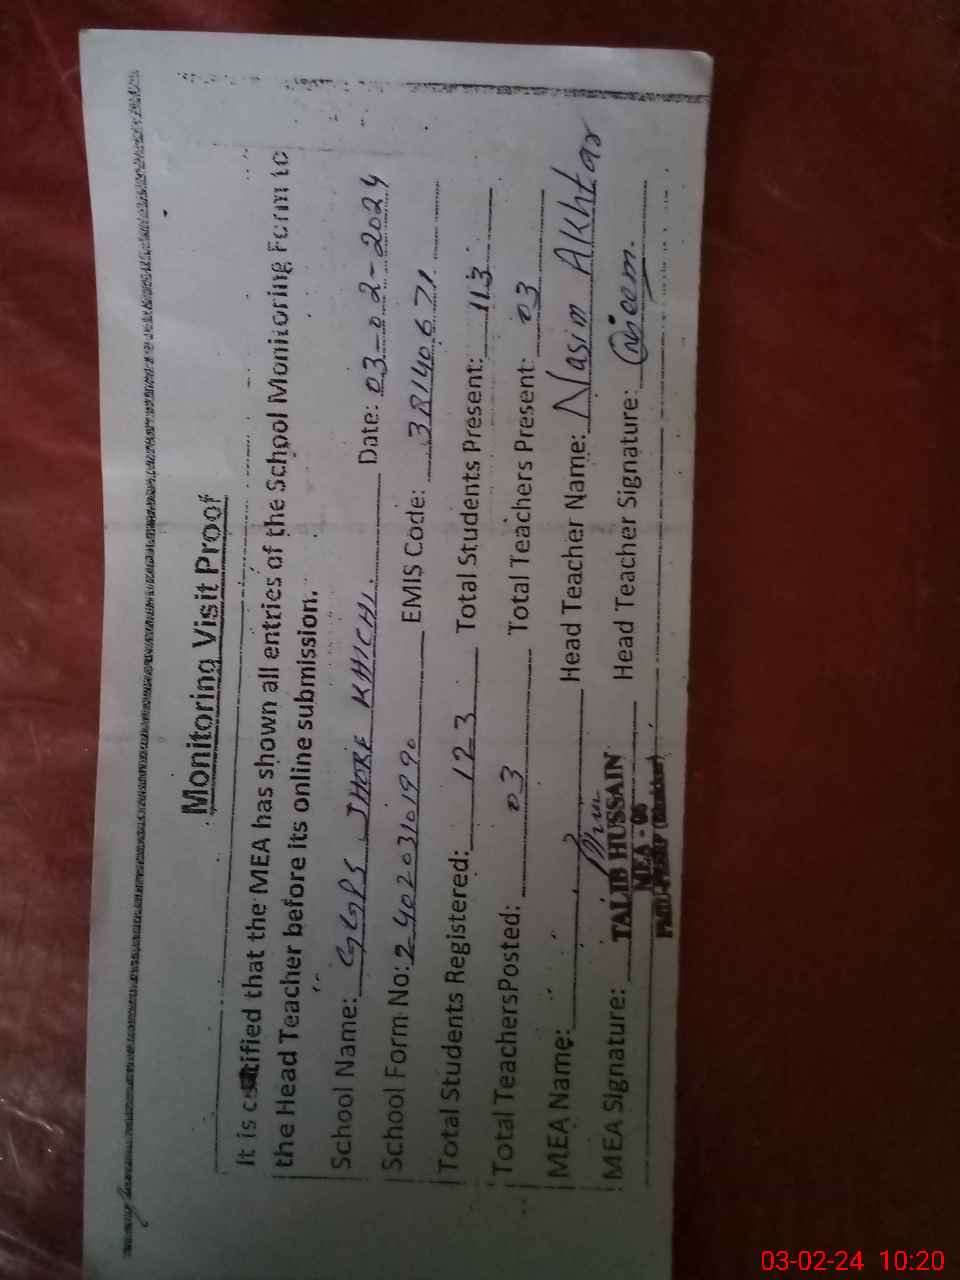 Monitoring Visit Proof
It is certified that the MEA has shown all entries of the School Monitoring Form to
the Head Teacher before its online submission.
School Name: GGPS JHOKE KHICHI. Date: 03-02-2024
School Form No: 240203101990 EMIS Code: 38140671.
Total Students Registered: 123 Total Students Present: 113
Total TeachersPosted: 03 Total Teachers Present: 03
MEA Name: Head Teacher Name: Nasim Akhtar
MEA Signature: Head Teacher Signature:
TALIB HUSSAIN
MEA - 06
03-02-24 10:20